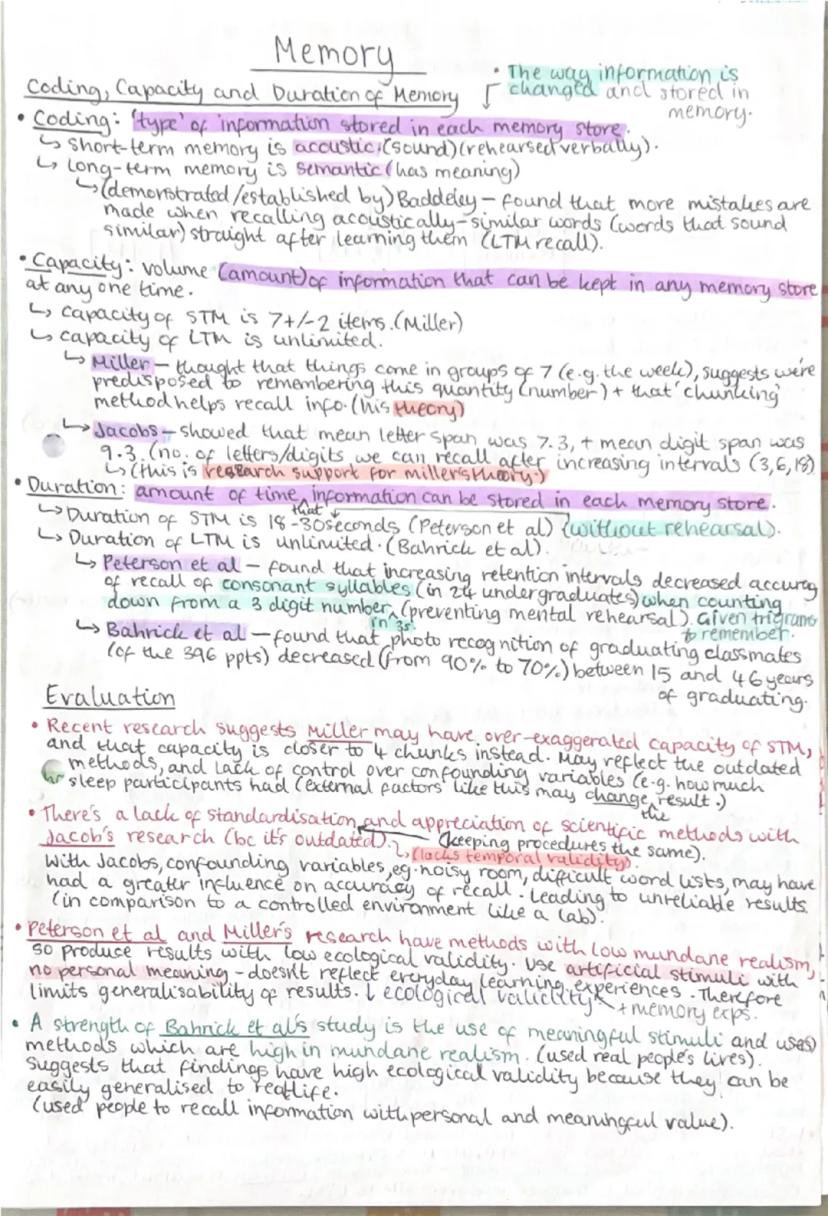 Memory
• The way information is
changed and stored in
memory.
Coding, Capacity and Duration of Memory
• Coding: 'type' of information stored in each memory store.
↳ short-term memory is acoustic (sound) (rehearsed verbally).
↳ long-term memory is semantic (has meaning)
↳ (demonstrated/established by) Baddeley – found that more mistakes are
made when recalling acoustically-similar words (words that sound
similar) straight after learning them (LTM recall).
• Capacity: volume (amount) of information that can be kept in any memory store
at any one time.
↳ Capacity of STM is 7+/-2 items. (Miller)
↳ Capacity of LTM is unlimited.
↳ Miller – thought that things come in groups of 7 (e.g. the week), suggests we're
predisposed to remembering this quantity (number) + that 'chunking'
method helps recall info. (his theory)
↳ Jacobs – showed that mean letter span was 7.3, + mean digit span was
9.3. (no. of letters/digits we can recall after increasing intervals (3,6,18)
↳ (this is research support for miller's theory.)
• Duration: amount of time information can be stored in each memory store.
that
↳ Duration of STM is 18-30 seconds (Peterson et al) (without rehearsal).
↳ Duration of LTM is unlimited. (Bahrick et al).
↳ Peterson et al – found that increasing retention intervals decreased accuracy
of recall of consonant syllables (in 24 undergraduates) when counting
down from a 3 digit number, (preventing mental rehearsal). Given trigrams
in 3s. to remember.
↳ Bahrick et al – found that photo recognition of graduating classmates
(of the 396 ppts) decreased (from 90% to 70%) between 15 and 46 years
of graduating.
Evaluation
• Recent research suggests Miller may have over-exaggerated capacity of STM,
and that capacity is closer to 4 chunks instead. May reflect the outdated
methods, and lack of control over confounding variables (e.g. how much
sleep participants had (external factors like this may change the result.)
• There's a lack of standardisation and appreciation of scientific methods with
Jacob's research (bc it's outdated). (keeping procedures the same).
(lacks temporal validity)
With Jacobs, confounding variables, eg. noisy room, difficult word lists, may have
had a greater influence on accuracy of recall. Leading to unreliable results
(in comparison to a controlled environment like a lab).
• Peterson et al and Miller's research have methods with low mundane realism,
so produce results with low ecological validity. Use artificial stimuli with
no personal meaning – doesn't reflect everyday learning experiences. Therefore
limits generalisability of results. ↓ ecological validity + memory exps.
• A strength of Bahrick et al's study is the use of meaningful stimuli and uses
methods which are high in mundane realism. (used real people's lives).
Suggests that findings have high ecological validity because they can be
easily generalised to real life.
(used people to recall information with personal and meaningful value).